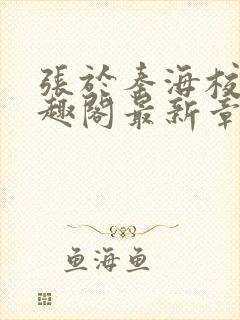 張於秦海校
趣閣最新章
鱼海鱼